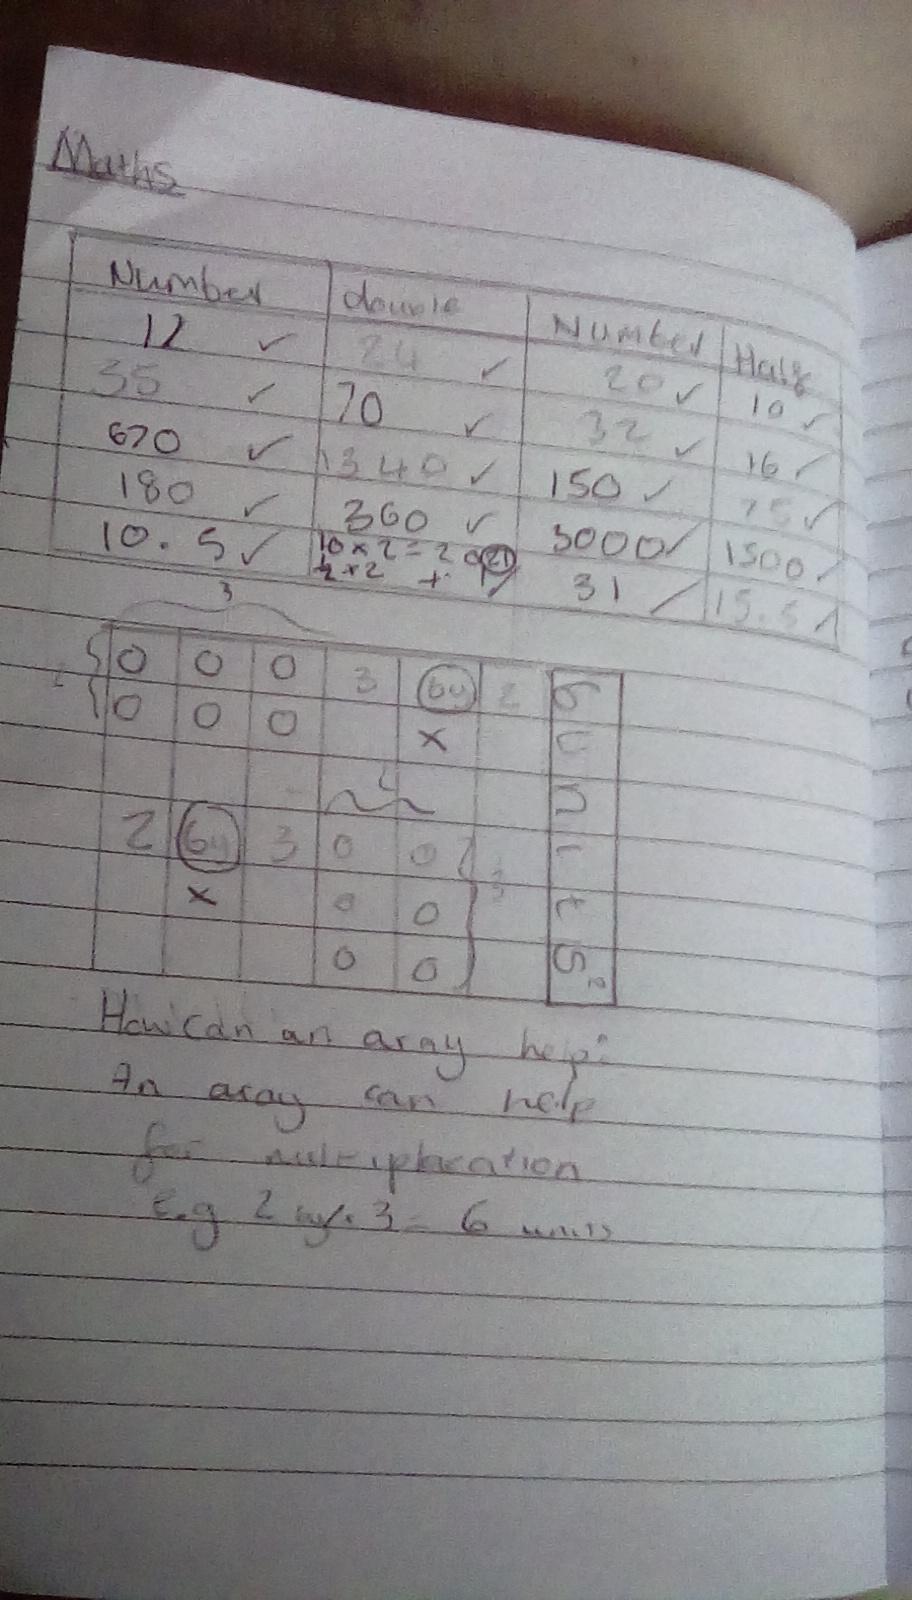 Maths
Number double Number Half
12 ✓ 24 ✓ 20 ✓ 10 ✓
35 ✓ 70 ✓ 32 ✓ 16 ✓
670 ✓ 1340 ✓ 150 ✓ 75 ✓
180 ✓ 360 ✓ 3000 ✓ 1500 ✓
10.5 ✓ 10 × 2 = 20 21 31 ✓ 15.5 ✓
½ × 2 +
3
0 0 0 3 6u 2
0 0 0 x
2 6u 3 0 0 3
x 0 0
0 0
6 units
How can an aray help?
An aray can help
for multiplacation
e.g 2 by 3 = 6 units